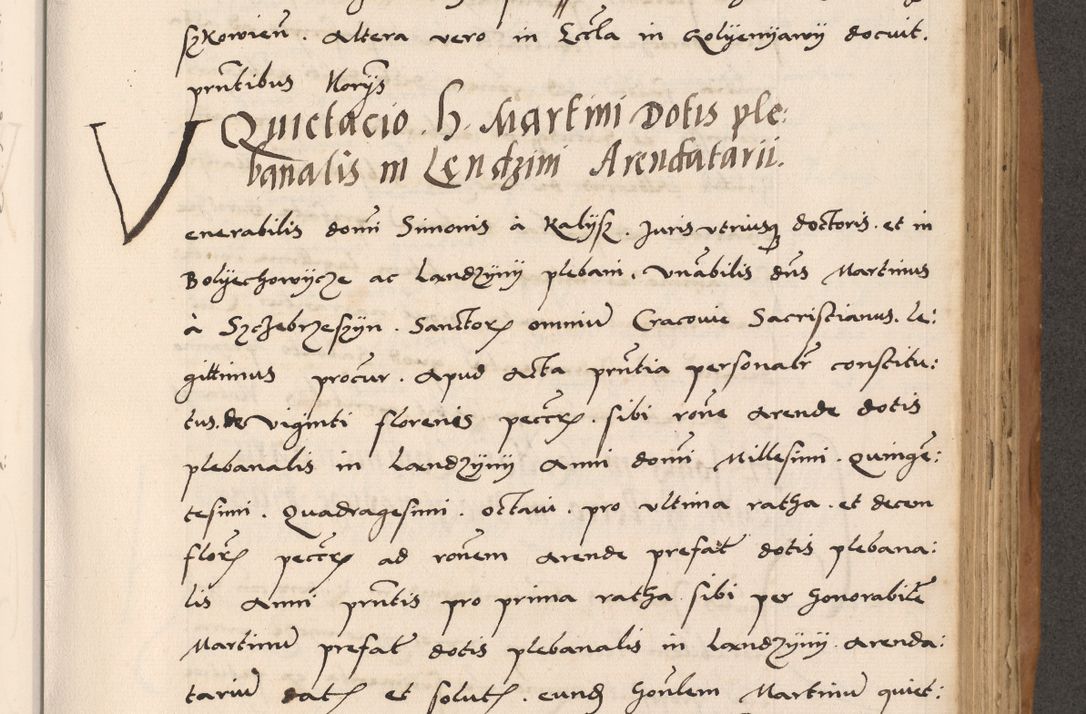 szkowien̄. Altera vero in Eccl̃a in Qolyenyawy docuit.
prñtibus Norys
Quictacio h. Martini Dotis ple:
banalis in Lendzini Arendatarii.
Venerabilis domi Simonis à Kalysz. Juris vtriusq doctoris. et in
Bolyechowycze ac Landzyny plebani, Vnãbilis dñs Martinus
à Szczebrzeszyn. Sanctor omniũ Cracovie Sacristianus. le:
gittimus procur. Apud Acta prñtia personalr constitu:
tus. de viginti florenis peccr. sibi rone Arende dotis
plebanalis in Landzyny Anni domi Millesimi. Quinge:
tesimi. Quadragesimi. octaui. pro vltima ratha. et decem
flor peccr ad ronem Arende prefat dotis plebana:
lis Anni prñtis pro prima ratha sibi per honorabile
Martinũ prefat dotis plebanalis in Landzyny Arenda:
tariũ dat et solut. eund honlem Martinũ quiet: